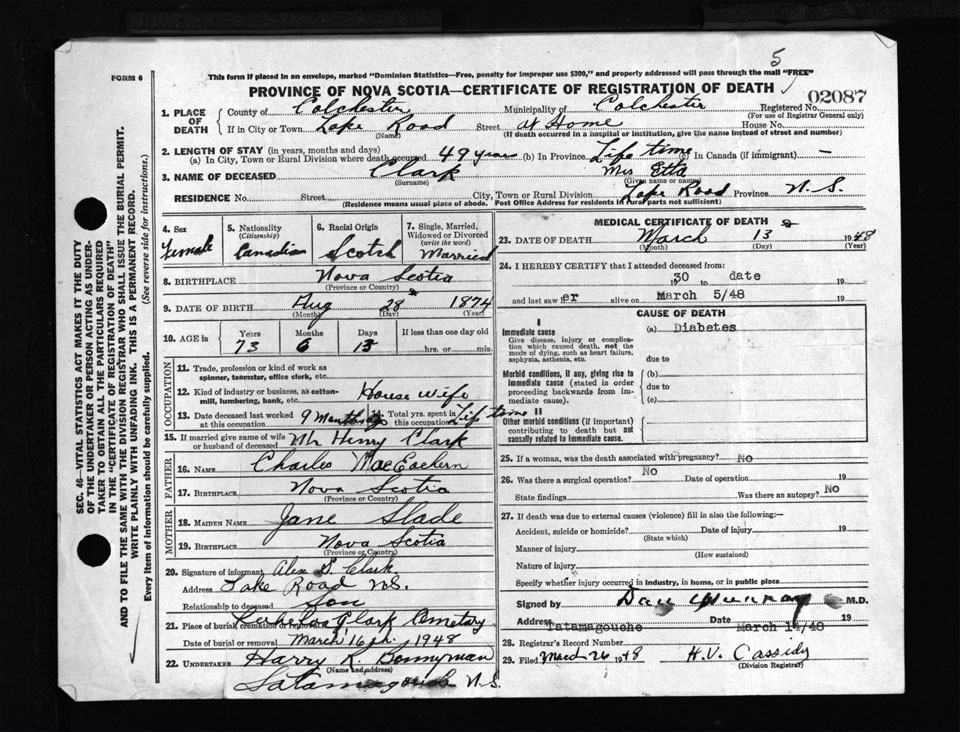 5
FORM 6
This form if placed in an envelope, marked "Dominion Statistics—Free, penalty for improper use $300," and properly addressed will pass through the mail "FREE"
PROVINCE OF NOVA SCOTIA—CERTIFICATE OF REGISTRATION OF DEATH
02087
1. PLACE OF DEATH
County of Colchester Municipality of Colchester Registered No.
(For use of Registrar General only)
If in City or Town Lake Road Street At Home House No.
(Name) (If death occurred in a hospital or institution, give the name instead of street and number)
2. LENGTH OF STAY (in years, months and days)
(a) In City, Town or Rural Division where death occurred 49 years (b) In Province Life time (c) In Canada (if immigrant) —
3. NAME OF DECEASED Clark Mrs Etta
(Surname) (Given name or names)
RESIDENCE No. Street City, Town or Rural Division Lake Road Province N.S.
(Residence means usual place of abode. Post Office Address for residents in rural parts not sufficient)
4. Sex Female
5. Nationality (Citizenship) Canadian
6. Racial Origin Scotch
7. Single, Married, Widowed or Divorced (write the word) Married
8. BIRTHPLACE Nova Scotia
(Province or Country)
9. DATE OF BIRTH Aug 28 1874
(Month) (Day) (Year)
10. AGE in Years Months Days If less than one day old
73 6 13 hrs. or min.
OCCUPATION
11. Trade, profession or kind of work as spinner, teamster, office clerk, etc.
12. Kind of industry or business, as cotton-mill, lumbering, bank, etc. House wife
13. Date deceased last worked at this occupation 9 Months Total yrs. spent in this occupation Life time
15. If married give name of wife or husband of deceased Mr Henry Clark
FATHER
16. NAME Charles MacEachern
17. BIRTHPLACE Nova Scotia
(Province or Country)
MOTHER
18. MAIDEN NAME Jane Slade
19. BIRTHPLACE Nova Scotia
(Province or Country)
20. Signature of informant Alex D. Clark
Address Lake Road N.S.
Relationship to deceased Son
21. Place of burial, cremation or removal Clark Cemetary
Date of burial or removal March 16th. 1948
22. UNDERTAKER Harry K. Bonnyman
(Name and address)
Tatamagouche N.S.
MEDICAL CERTIFICATE OF DEATH
23. DATE OF DEATH March 13 1948
(Month) (Day) (Year)
24. I HEREBY CERTIFY that I attended deceased from:
1930 to date 19
and last saw h er alive on March 5/48 19
CAUSE OF DEATH
I
Immediate cause (a) Diabetes
Give disease, injury or complication which caused death, not the mode of dying, such as heart failure, asphyxia, asthenia, etc.
due to
Morbid conditions, if any, giving rise to immediate cause (stated in order proceeding backwards from immediate cause).
(b)
due to
(c)
II
Other morbid conditions (if important) contributing to death but not causally related to immediate cause.
25. If a woman, was the death associated with pregnancy? No
26. Was there a surgical operation? No Date of operation 19
State findings Was there an autopsy? No
27. If death was due to external causes (violence) fill in also the following:—
Accident, suicide or homicide? Date of injury 19
(State which)
Manner of injury
(How sustained)
Nature of injury
Specify whether injury occurred in industry, in home, or in public place
Signed by Dan Murray M.D.
Address Tatamagouche Date March 14/48 19
28. Registrar's Record Number
29. Filed March 26 1948 H.V. Cassidy
(Division Registrar)
SEC. 46—VITAL STATISTICS ACT MAKES IT THE DUTY
OF THE UNDERTAKER OR PERSON ACTING AS UNDER-
TAKER TO OBTAIN ALL THE PARTICULARS REQUIRED
IN THE "CERTIFICATE OF REGISTRATION OF DEATH"
AND TO FILE THE SAME WITH THE DIVISION REGISTRAR WHO SHALL ISSUE THE BURIAL PERMIT.
WRITE PLAINLY WITH UNFADING INK. THIS IS A PERMANENT RECORD.
Every item of information should be carefully supplied. (See reverse side for instructions.)